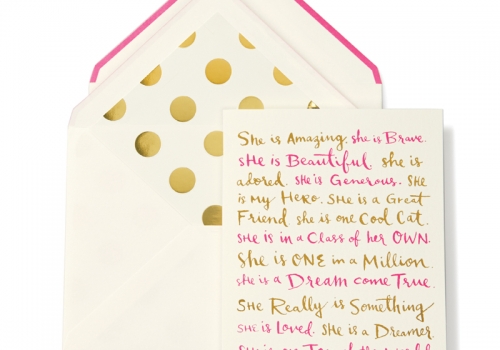 She is Amazing. she is Brave.
she is Beautiful. she is
adored. she is Generous. She
is my Hero. She is a Great
Friend she is one Cool Cat.
she is in a Class of her OWN.
She is ONE in a Million.
she is a Dream come True.
She Really is Something
she is Loved. she is a Dreamer
she is on Top of the world